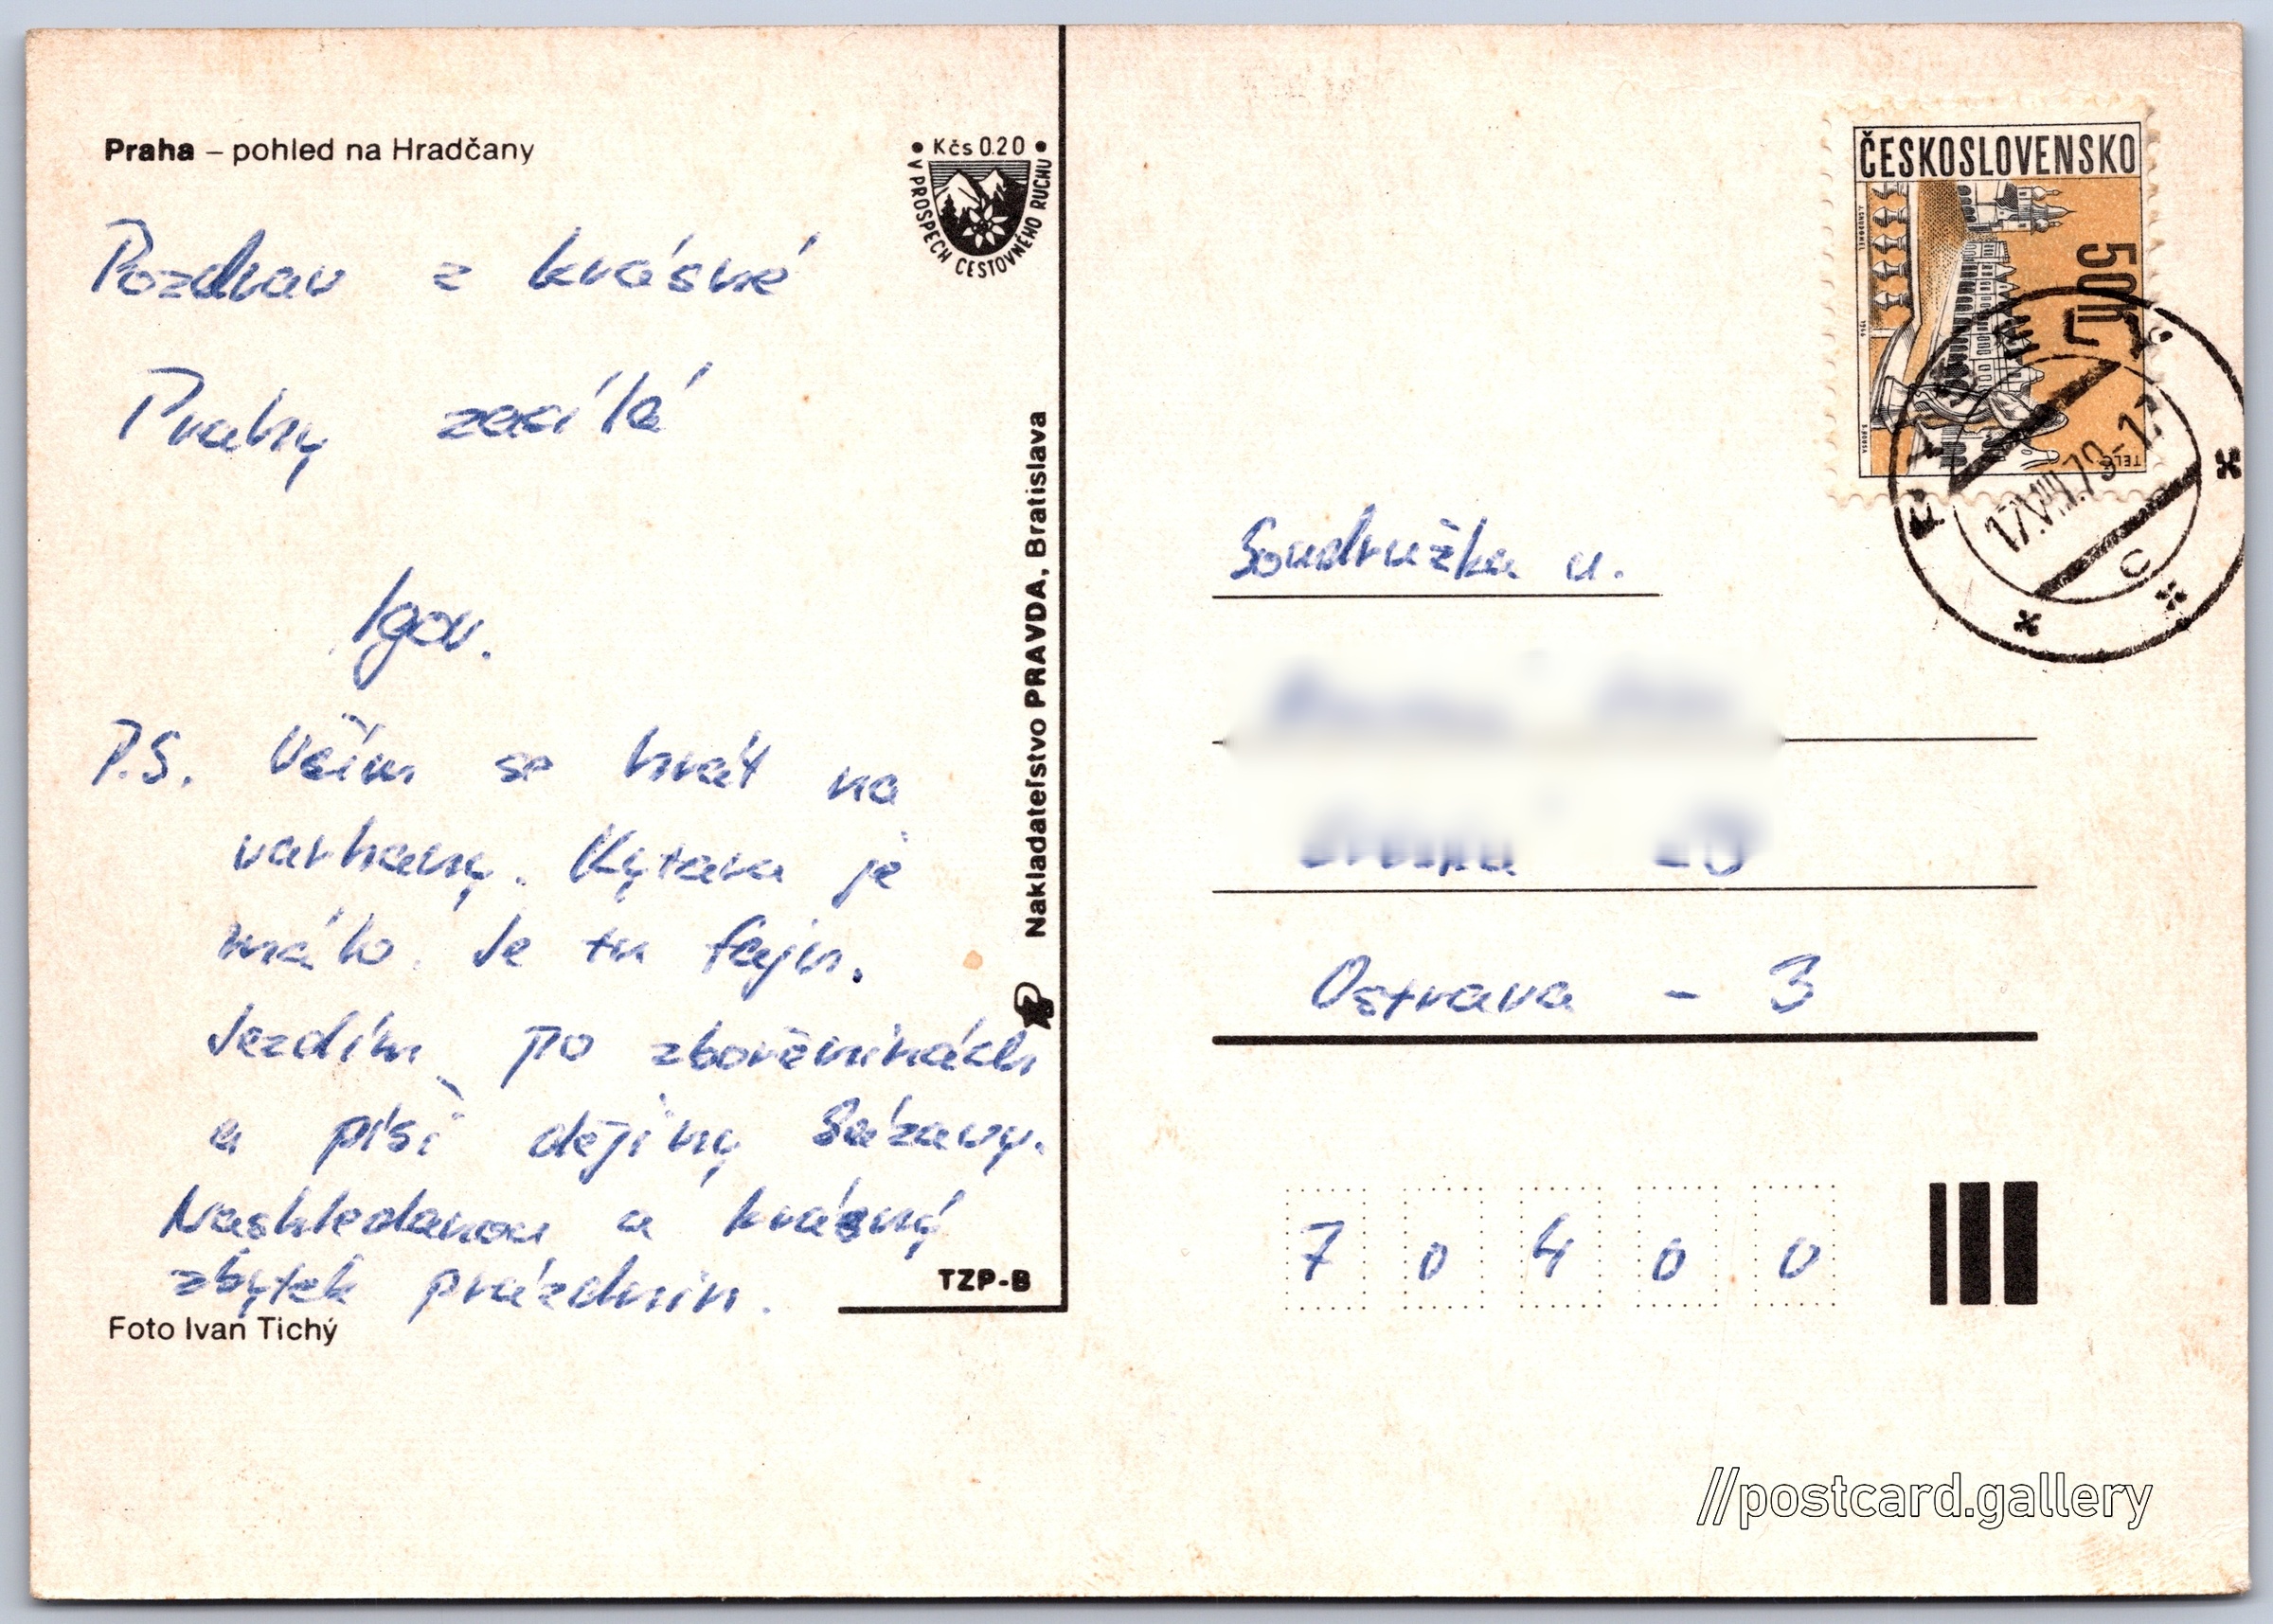 Praha – pohled na Hradčany
• Kčs 0.20 •
V PROSPECH CESTOVNÉHO RUCHU
Pozdrav z krásné
Prahy zasílá
Igor.
P.S. Učím se hrát na
varhany. Kytara je
málo. Je tu fajn.
Jezdím po zbořeninách
a píši dějiny Sázavy.
Nashledanou a krásný
zbytek prázdnin.
Foto Ivan Tichý
TZP-B
Nakladateľstvo PRAVDA, Bratislava
ČESKOSLOVENSKO
50h
TELČ
1966
17.VIII.79-17
C
Soudružka u.
Ostrava - 3
7 0 4 0 0
//postcard.gallery